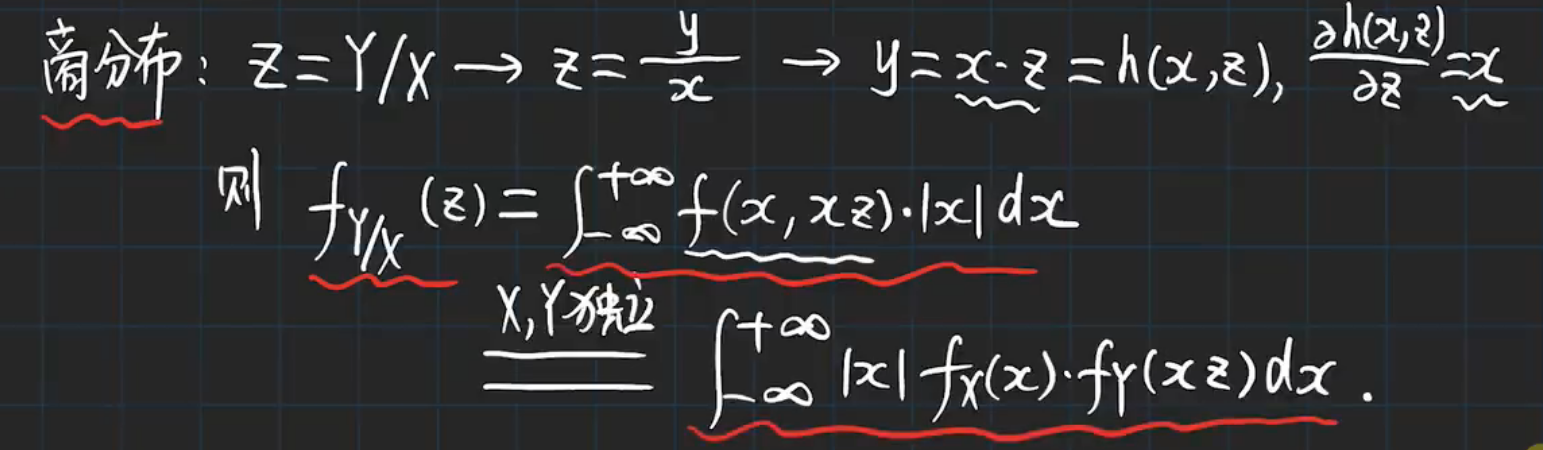 商分布: Z=Y/X → z=y/x → y=x·z=h(x,z), ∂h(x,z)/∂z=x
则 f_{Y/X}(z)=∫_{-∞}^{+∞} f(x,xz)·|x|dx
X,Y独立
= ∫_{-∞}^{+∞} |x|f_X(x)·f_Y(xz)dx.